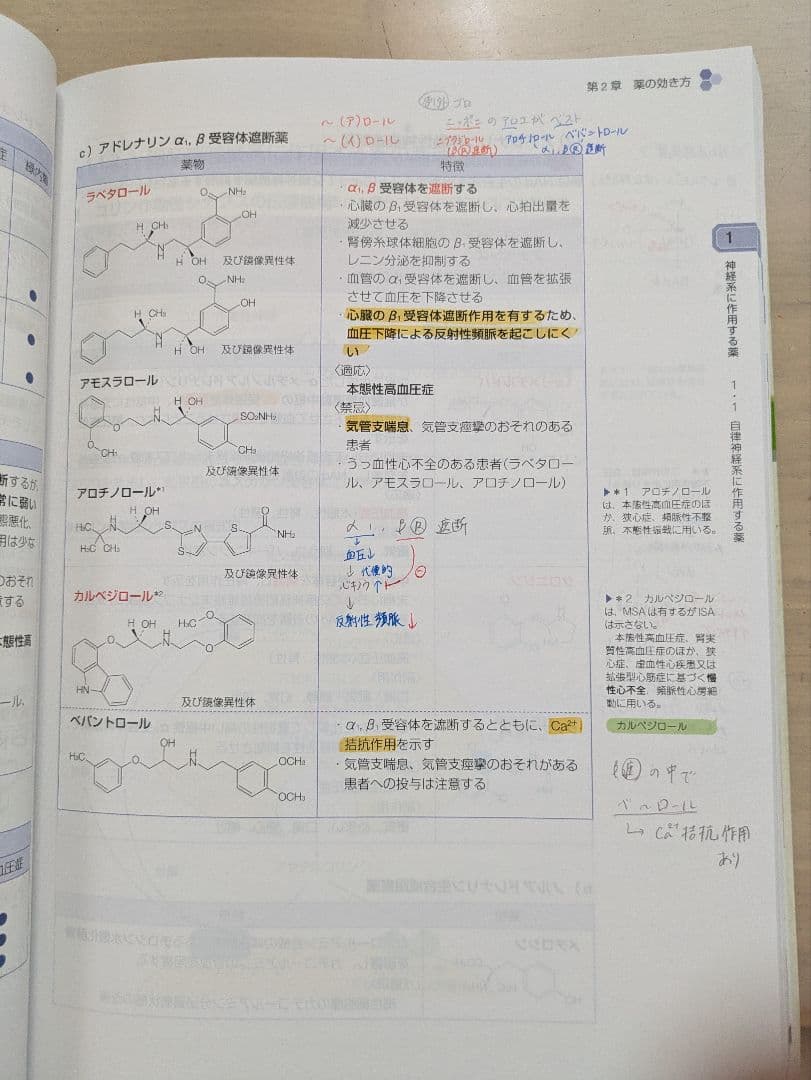 第2章 薬の効き方
例外 プロ
〜(ア)ロール
ニッポニのアロエがベスト
〜(イ)ロール
ニプラジロール アロチノロール ベバントロール
(β遮断)
α₁,β®遮断
c)アドレナリンα₁,β受容体遮断薬
薬物
特徴
ラベタロール
O
NH₂
OH
H CH₃
N
H
H OH
及び鏡像異性体
O
NH₂
OH
H CH₃
N
H
H OH
及び鏡像異性体
アモスラロール
O
OCH₃
H
N
H OH
SO₂NH₂
CH₃
及び鏡像異性体
アロチノロール*¹
H₃C
H₃C CH₃
H
N
H OH
S
N
S
S
O
NH₂
及び鏡像異性体
カルベジロール*²
O
H OH
H
N
O
H₃C
O
HN
及び鏡像異性体
・α₁,β受容体を遮断する
・心臓のβ₁受容体を遮断し、心拍出量を
減少させる
・腎傍糸球体細胞のβ₁受容体を遮断し、
レニン分泌を抑制する
・血管のα₁受容体を遮断し、血管を拡張
させて血圧を下降させる
・心臓のβ₁受容体遮断作用を有するため、
血圧下降による反射性頻脈を起こしにく
い
〈適応〉
本態性高血圧症
〈禁忌〉
・気管支喘息、気管支痙攣のおそれのある
患者
・うっ血性心不全のある患者(ラベタロー
ル、アモスラロール、アロチノロール)
α₁, β® 遮断
↓
血圧↓
↓代償的
心キノウ↑
⊖
↓
反射性頻脈↓
ベバントロール
H₃C
O
OH
H
N
OCH₃
OCH₃
・α₁,β₁受容体を遮断するとともに、Ca²⁺
拮抗作用を示す
・気管支喘息、気管支痙攣のおそれがある
患者への投与は注意する
1
神経系に作用する薬
1・1 自律神経系に作用する薬
▶*1 アロチノロール
は、本態性高血圧症のほ
か、狭心症、頻脈性不整
脈、本態性振戦に用いる。
▶*2 カルベジロール
は、MSAは有するがISA
は示さない。
本態性高血圧症、腎実
質性高血圧症のほか、狭
心症、虚血性心疾患又は
拡張型心筋症に基づく慢
性心不全、頻脈性心房細
動に用いる。
カルベジロール
β遮の中で
ベ〜ロール
↳ Ca²⁺拮抗作用
あり